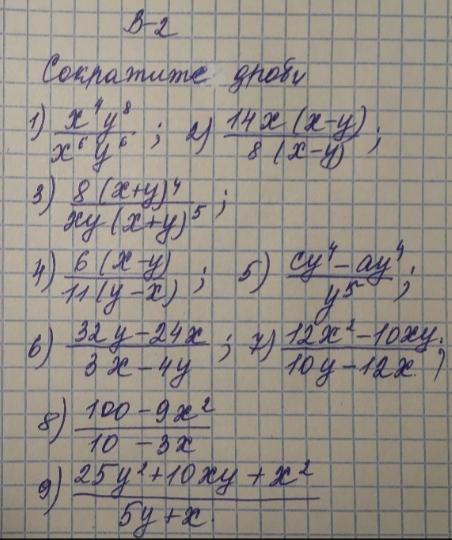 В-2
Сократите дроби
1) x⁴y⁸/x⁶y⁶ ; 2) 14x(x-y)/8(x-y) ;
3) 8(x+y)⁴/xy(x+y)⁵ ;
4) 6(x-y)/11(y-x) ; 5) cy⁴-ay⁴/y⁵ ;
6) 32y-24x/3x-4y ; 7) 12x²-10xy/10y-12x ;
8) 100-9x²/10-3x
9) 25y²+10xy+x²/5y+x.